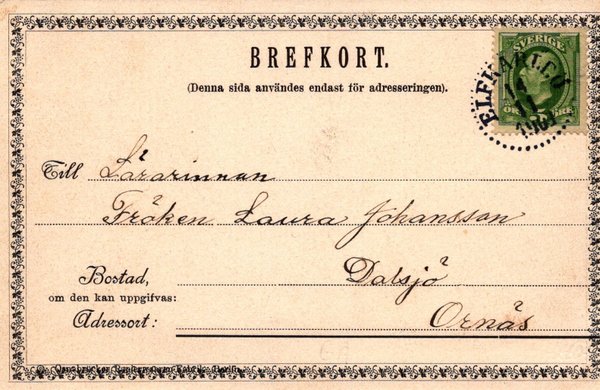 BREFKORT.
(Denna sida användes endast för adresseringen).
SVERIGE
ELFKARLEÖ
14
Till Lärarinnan
Fröken Laura Johansson
Bostad,
om den kan uppgifvas:
Dalsjö
Adressort: Ornäs